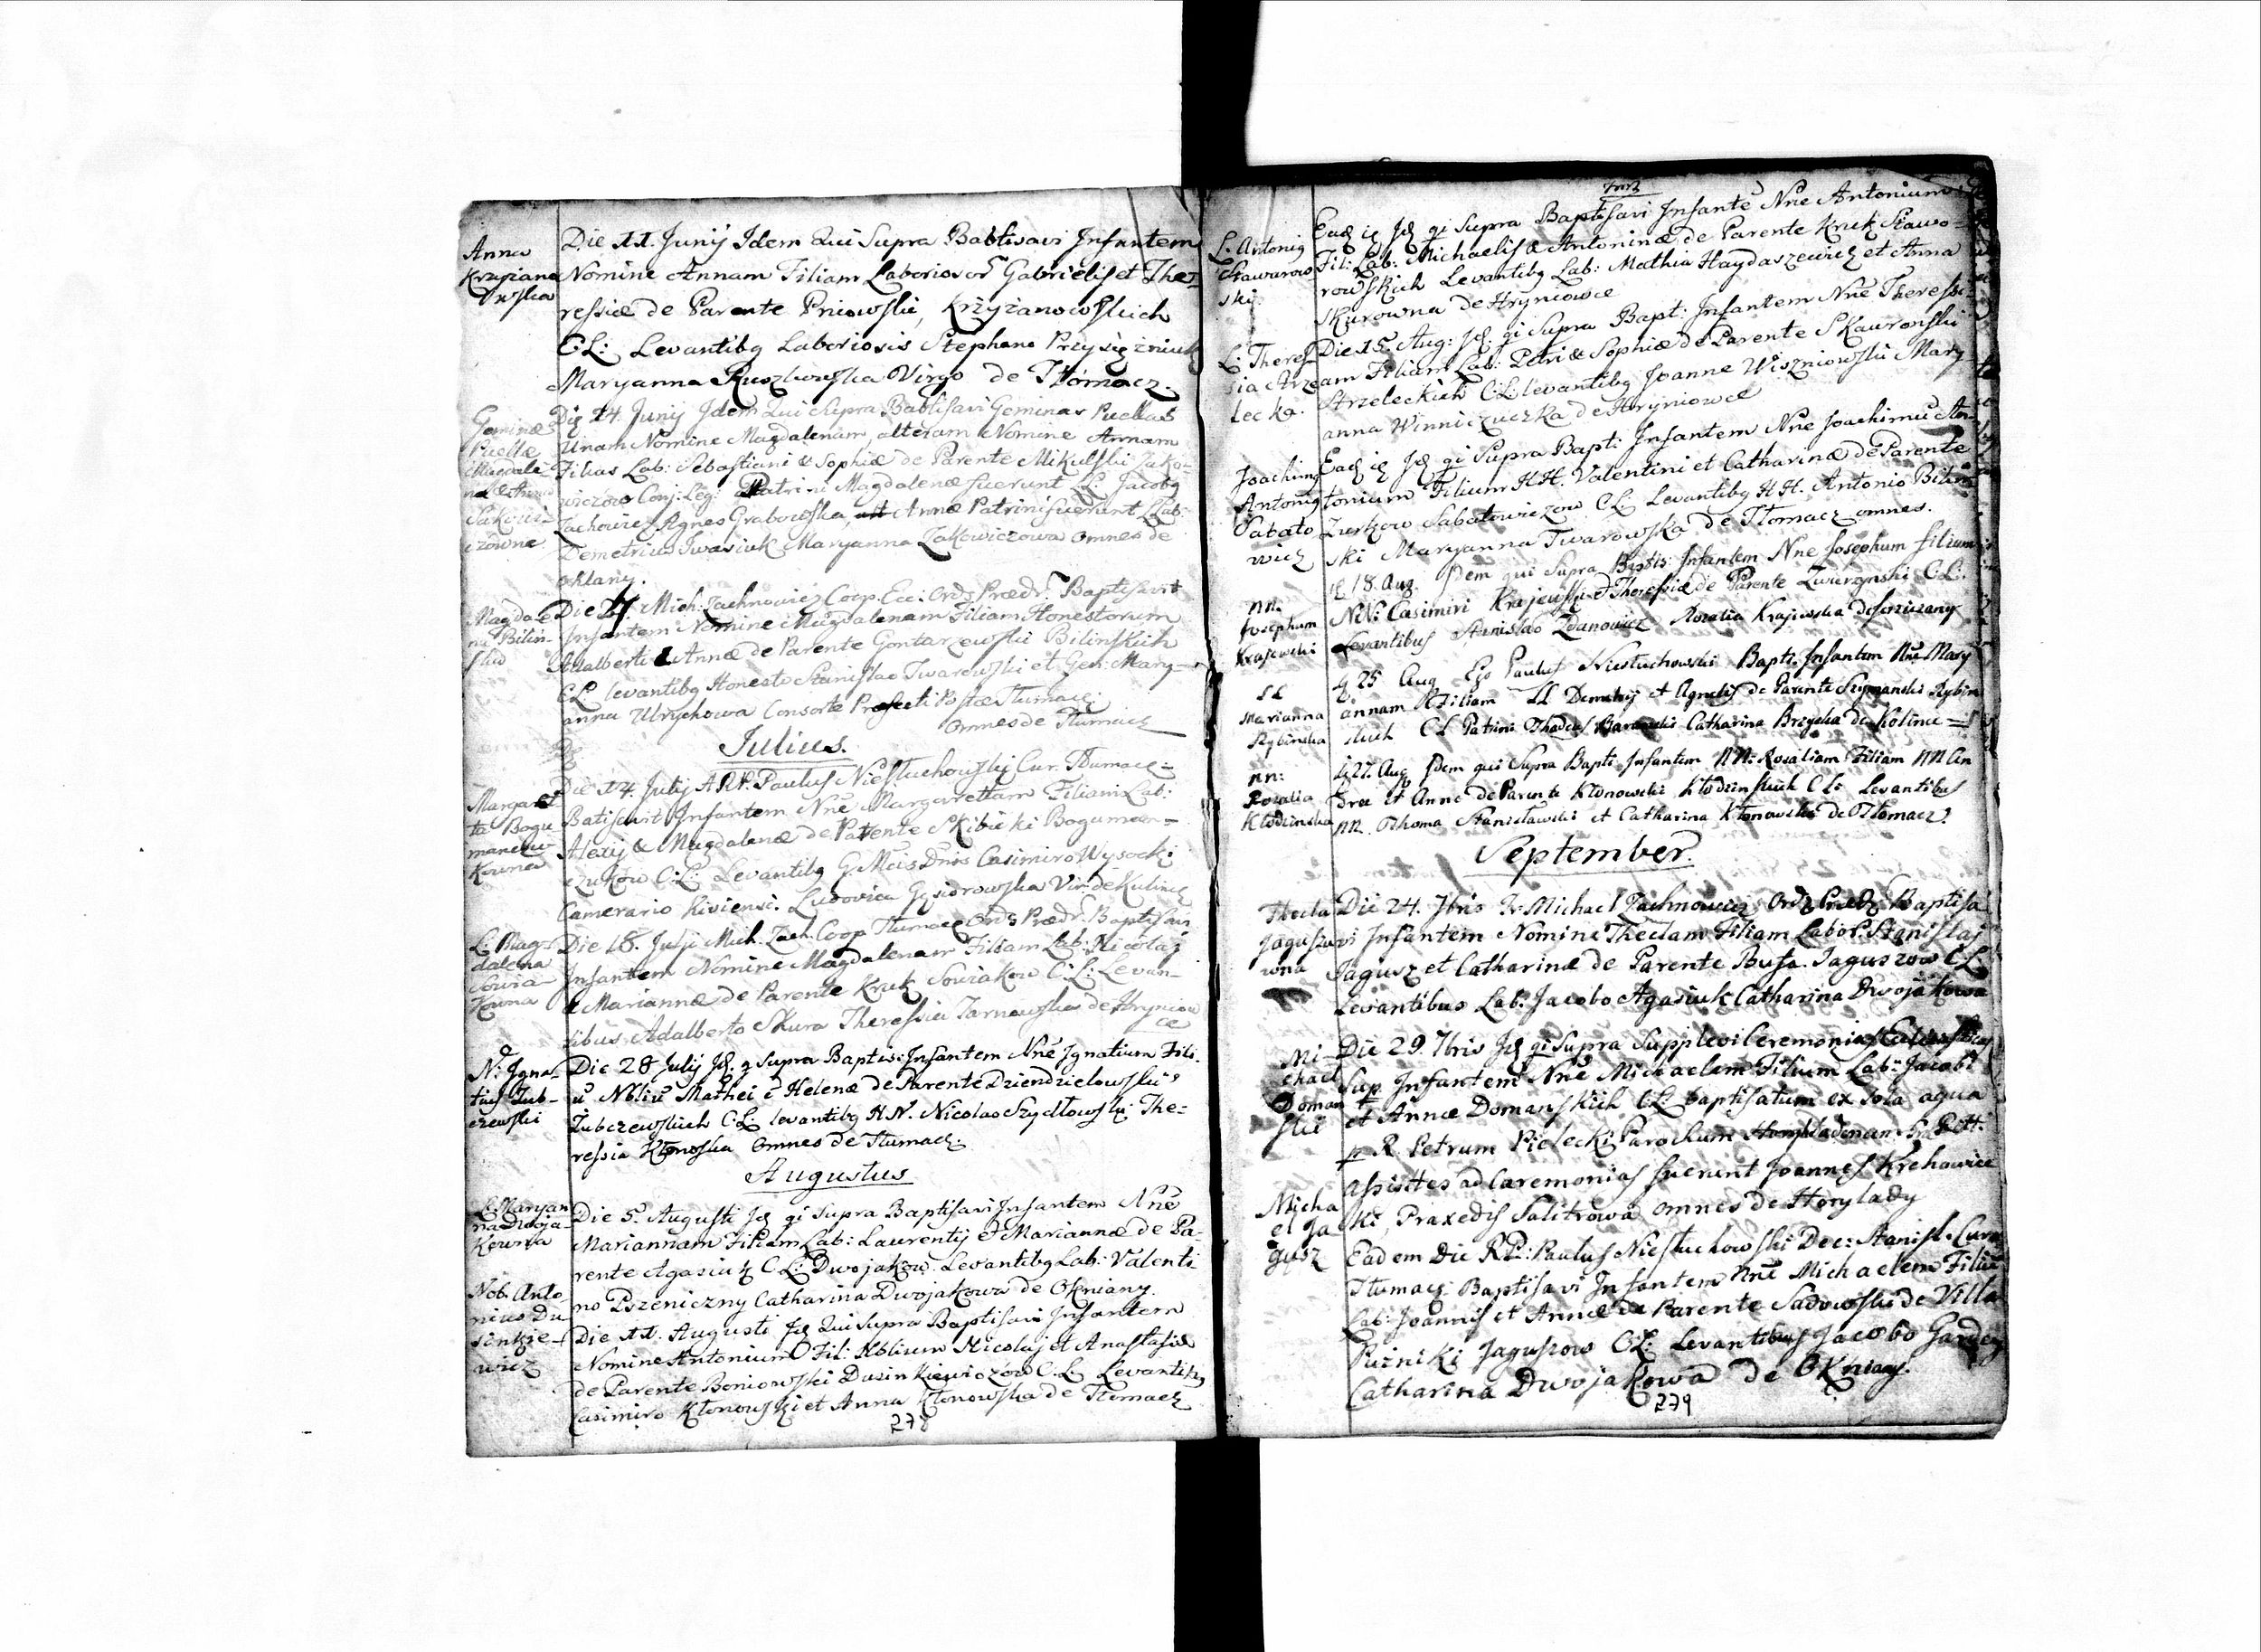 Anna
Krzyzano
wska
Die 11. Junij Idem Qui Supra Babtisavi Infantem
Nomine Annam Filiam Laborioso Gabrielis et The=
ressiæ de Parente Pniowski, Krżyżanowskich
C:L: Levantibq Laboriosis Stephano Przysiężniuk
Maryanna Ruszkowska Virgo de Tłómacz.
Geminæ
Puellæ
Magdale
na & Anna
Zakowi
czowne
Die 24. Junij Idem Qui Supra Babtisavi Geminas Puellas
Unam Nomine Magdalenam, alteram Nomine Annam
Filias Lab: Sebastiani & Sophiæ de Parente Mikulski Zako-
wiczow Conj: Leg: Patrini Magdalenæ fuerunt L: Jacobq
Zachowicz Agnes Grabowska, Annæ Patrini fuerunt Lab:
Demetrius Iwasiuk Maryanna Zakowiczowa Omnes de
oklany.
Magdale
na Bilin-
ska
Die Mich: Zachnowicz Coop. Ecc: Ord: Præd: Baptisavit
Infantem Nomine Magdalenam Filiam Honestorum
Adalberti & Annæ de Parente Gontarzewski Bilinskich
CL levantibq Honesto Stanislao Twarowski et Gen: Mary-
anna Ulrychowa Consorte Præfecti Postæ Tłumacz:
Omnes de Tłumacz
Julius.
Margaret
ta Bogu
manczu
kowna
Die 14. Julij A.R.P. Paulus Niestuchowski Cur. Tłumacz=
Batisavit Infantem Nne Margarettam Filiam Lab:
Alexij & Magdalenæ de Parente Skibicki Boguman=
czukow C:L: Levantibq G. Mcis Dnis Casimiro Wysocki
Camerario Kiviensi. Ludovica Gąsiorowska Vir: de Kulincz
L: Mag-
dalena
Souia
kowna
Die 18. Julij Mich. Zach. Coop Tłumacz Ord: Præd: Baptisavi
Infantem Nomine Magdalenam Filiam Lab: Nicolaj
& Mariannæ de Parente Kruk Souiakow C:L: Levan-
tibus Adalberto Skura Theressia Tarnawska de Hryniow
ce
N: Igna-
tius Zub-
czewski
Die 28 Julij Id. q Supra Baptis: Infantem Nne Ignatium Fili-
u Nbliu Mathei & Helenæ de Parente Dziendzielowski
Zubczewskich C:L levantibq H.N. Nicolao Szydłowski The-
ressia Kłonoska Omnes de Tłumacz.
Augustus
L. Maryan
na Dwoja-
kowna
Die 5. Augusti Id qi Supra Baptisavi Infantem Nne
Mariannam Filiam Lab: Laurentij & Mariannæ de Pa-
rente Agasiuk C:L: Dwojakow. Levantibq Lab: Valenti
no Pszeniczny Catharina Dwojakowa de Okniany.
Nob. Anto-
nius Du
sinkie-
wicz
Die 11. Augusti Id Qui Supra Baptisavi Infantem
Nomine Antonium Fil: Nblium Nicolaj et Anastasiæ
de Parente Boniowski Dusinkiewiczow C:L. Levantibq
Casimiro Kłonowski et Anna Kłonowska de Tłumacz
278
L. Antoniq
Skawarow
ski.
Ead Id qi Supra Baptisavi Infante Nne Antonium
Fil: Lab: Michaelis & Antoninæ de Parente Kruk Skawo-
rowskich Levantibq Lab: Mathia Haydaszewicz et Anna
Skurowna de Hryniowce
L: Theres
sia Strze
lecka.
Die 15. Aug: Id qi Supra Bapt: Infantem Nne Theressi-
am Filiam Lab: Petri & Sophiæ de Parente Skawronski
Strzeleckich C:L: levantibq Joanne Wiszniowski Mary
anna Winniczuczka de Hryniowce
Joachimq
Antoniq
Sabato
wicz
Ead Id qi Supra Bapti: Infantem Nne Joachimu An-
tonium Filium H.H. Valentini et Catharinæ de Parente
Zurkow Sabatowiczow C:L: Levantibq H.H. Antonio Bilin
ski Maryanna Twarowska de Tłomacz omnes.
nn.
Josephum
Krajewski
18. Aug. Idem qui Supra Baptis: Infantem Nne Josephum filium
N:N: Casimiri Krajewski & Theressiæ de Parente Zwierzynski C:L:
Levantibus Stanislao Zdanowicz Rosalia Krajewska
LL
Marianna
Rybinska
25 Aug Ego Paulus Niestuchowski Bapti. Infantem Nne Mary
annam Filiam LL Demetrij et Agnetis de Parente Szymanski Rybin
skich CL Patrini Thadeus Catharina Brzycka de Kolince
nn:
Rosalia
Kłodzinska
27. Aug Idem qui Supra Bapti Infantem NN: Rosaliam Filiam NN An
dreæ et Annæ de Parente Kłonowski Kłodzinskich C L: Levantibus
NN. Thoma Stanisławski et Catharina Kłonowska de Tłomacz.
September.
Thecla
Jagusza
wna
Die 24. 7bris Fr. Michael Zachnowicz Ord: Præd: Baptisa
vi Infantem Nomine Theclam Filiam Labor. Stanislaj
Jagusz et Catharinæ de Parente Busa. Jaguszow C L
Levantibus Lab. Jacobo Agasiuk Catharina Dwojakowa
Mi-
chael
Doman
ski
Die 29. 7bris Id qi Supra Supplevi Ceremonias
Sup Infantem Nne Michaelem Filium Lab: Jacobi
et Annæ Domanskich C:L: baptisatum ex sola aqua
p R. Petrum Pielecki Parochum
Assistes ad Caremonias fuerunt Joannes Krehowiec
ki, Praxedis Salitrowa omnes de Horylady
Micha
el Ja
gusz
Eadem Die R.P.: Paulus Niestuchowski Dec: Stanisl. Cura
Tłumacz: Baptisavi Infantem Nne Michaelem Filiu
Lab: Joannis et Annæ de Parente Sadowski de Villa
Puzniki Jaguszow C:L: Levantibus Jacobo Gardey
Catharina Dwojakowa de Okniany.
279